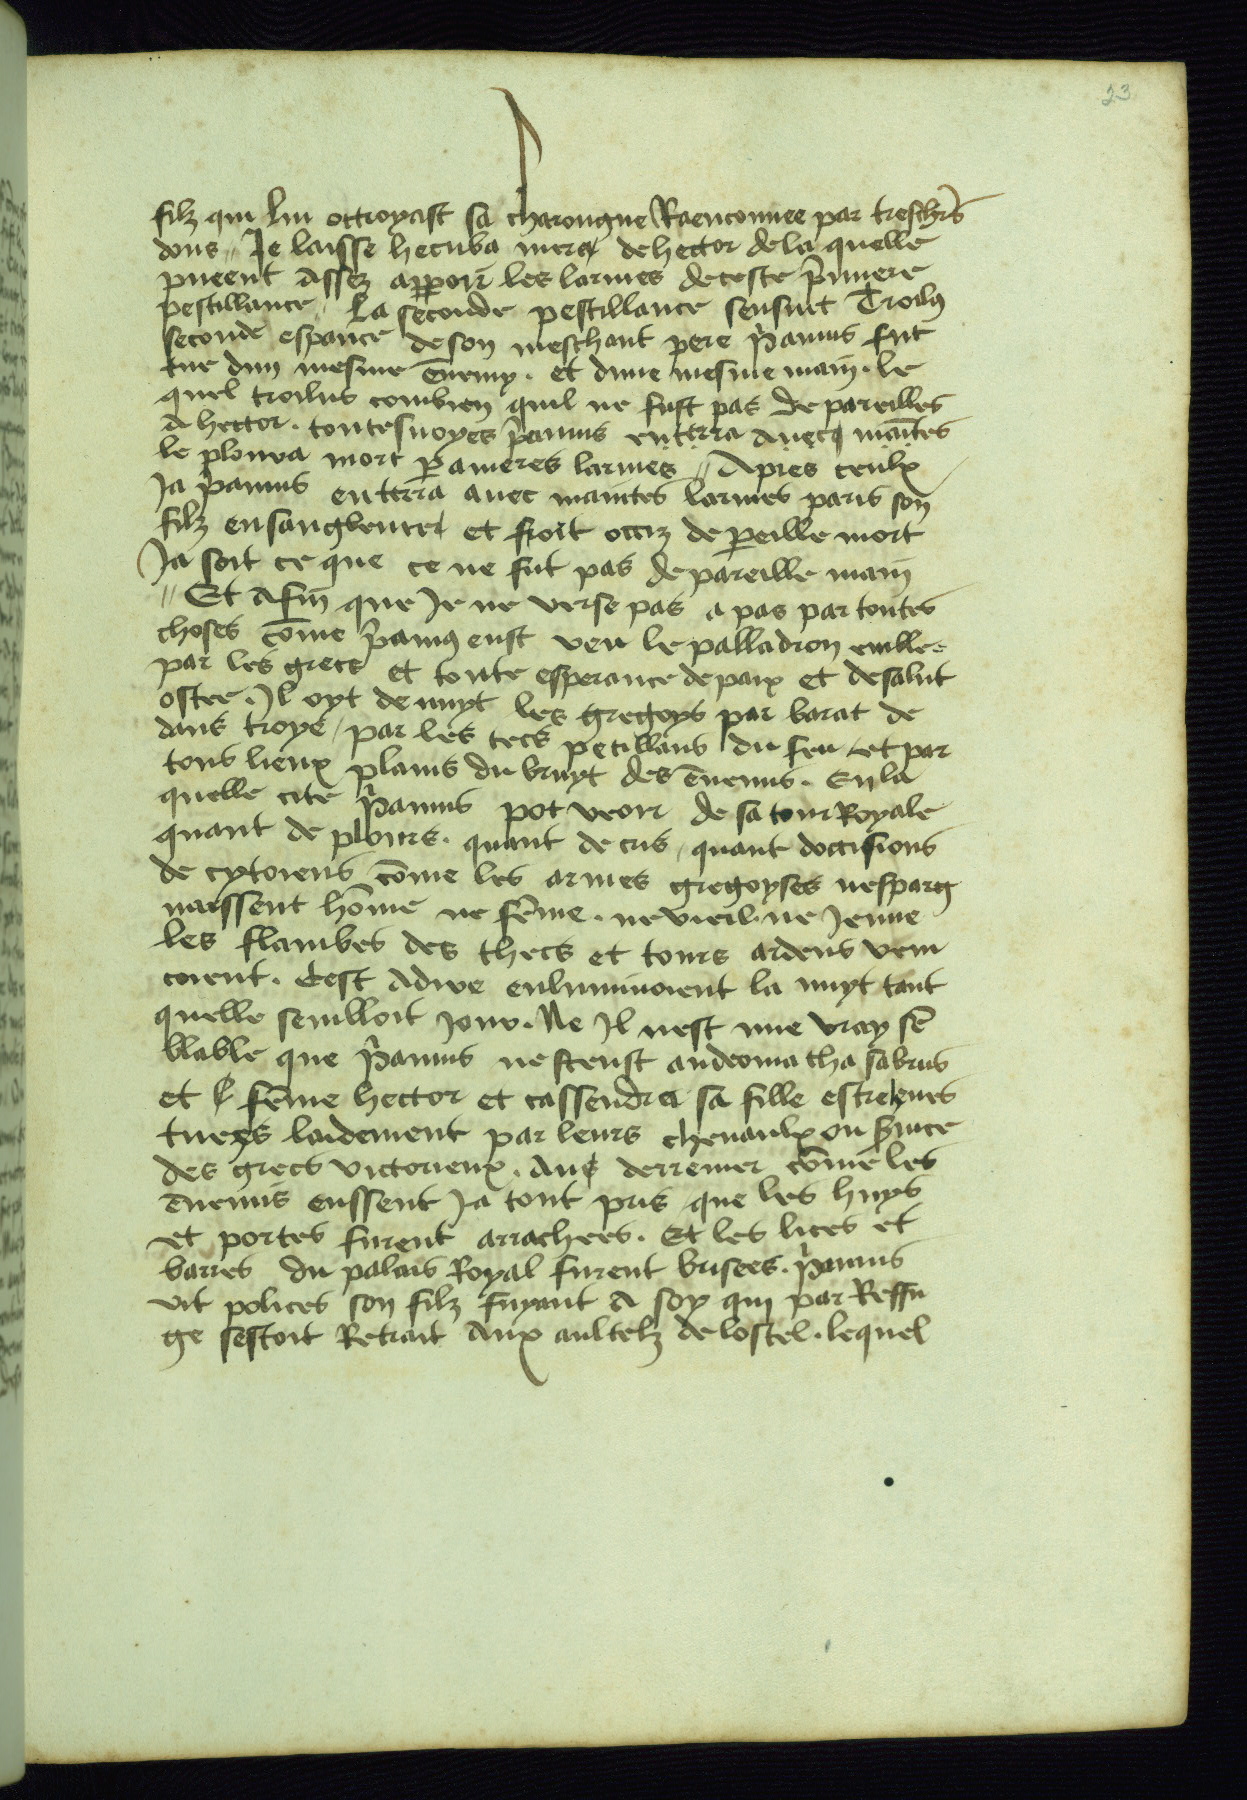 23
filz qui lui ottroyast sa charongne Raenconnee par treschrs̃
dons // Je laisse hecuba mere de hector de la quelle
pueent assez apparoir les larmes de ceste p̃miere
pestillance / La seconde pestillance sensuit Troilus
seconde esp̃ance de son meschant pere p̃amus fut
tue dun mesme ẽnemy . et dune mesme main . le
quel troilus combien quil ne fust pas de pareilles
a hector . toutesuoyes p̃amus enterra auecq maites
le ploura mort p ameres larmes // Apres ceulx
Ja p̃amus enterra auec maintes larmes paris son
filz ensanglente et froit occiz de peille mort
Ja soit ce que ce ne fut pas de pareille main
// Et Afin que Je ne verse pas a pas par toutes
choses cõme p̃amus eust veu le palladron emble
par les grecs et toute esperance de paix et de salut
ostee . Jl oyt de nuyt les gregoys par barat de
dans troye / par les tecs petillans du feu et par
tous lieux plains du bruyt des ẽnemis . En la
quelle cite p̃amus pot veoir de sa tour Royale
quant de plours . quant de cris / quant doccisions
de cytoiens cõme les armes gregoyses nesparg
naissent hõme ne fẽme . ne vieil ne Jeune
les flambes des thecs et tours ardens vein
coient . Cest Adire enluminoient la nuyt tant
quelle sembloit jour . Ne Jl nest mie vray sẽ
blable que p̃amus ne sceust andromatha sa brus
et fẽme hector et cassendra sa fille estre
tuees laidement par leurs cheuaulx ou
des grecs victorieux . Au derrenier cõme les
ẽnemis eussent Ja tout pris que les huys
et portes furent arrachees . Et les lices et
barres du palais Royal furent brisees . p̃amus
vit polices son filz fuyant a soy qui par Reffu
ge sestoit Retrait Aux aultelz de lostel . lequel